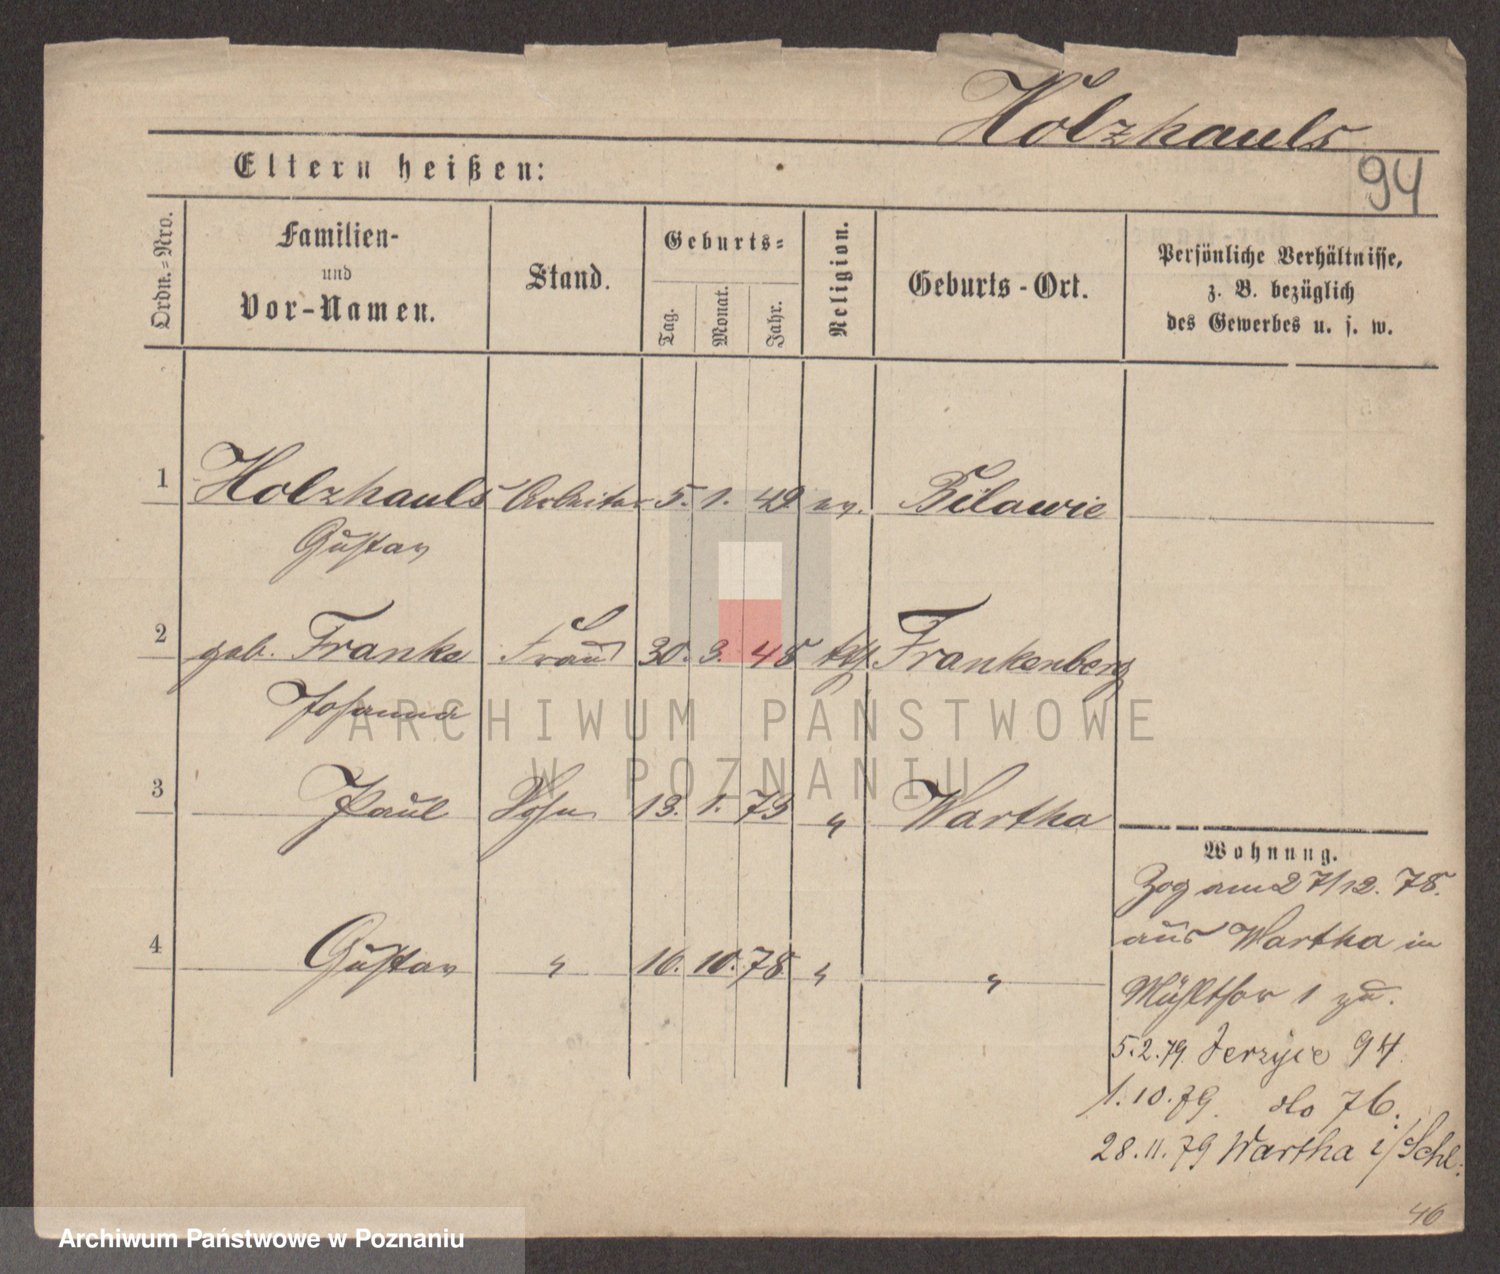 Holzhauls
94
Eltern heißen:
Ordn.-Nro.
Familien-
und
Vor-Namen.
Stand.
Geburts-
Tag.
Monat.
Jahr.
Religion.
Geburts-Ort.
Persönliche Verhältnisse,
z. B. bezüglich
des Gewerbes u. s. w.
1 Holzhauls Arbeiter 5. 1. 49 ev. Bilawie
Gustav
2 geb. Franke Frau 30. 3. 48 kth. Frankenberg
Johanna
ARCHIWUM PAŃSTWOWE
W POZNANIU
3 Paul Sohn 13. 1. 73 " Wartha
4 Gustav " 16. 10. 78 " "
Wohnung.
Zog am 27/12. 78.
aus Wartha in
Mühlthor 1 zu.
5.2.79. Jerzyce 94
1.10.79. do 76.
28.11.79 Wartha i/Schl.
46
Archiwum Państwowe w Poznaniu